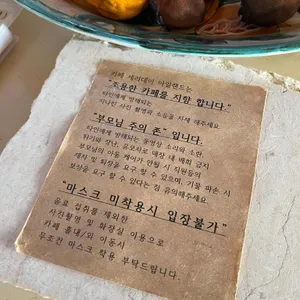 카페 세러데이 아일랜드는
"조용한 카페를 지향 합니다."
타인에게 방해되는
지나친 사진 촬영과 소음을 자제 해주세요.
"부모님 주의 존" 입니다.
타인에게 방해되는 동영상 소리와 소란,
뛰기와 장난, 유모차로 매장 내 배회 금지
부모님의 아동 케어가 안될 시 직원들의
제지 및 퇴장을 요구 할 수 있으며, 기물 파손 시
보상을 요구 할 수 있다는 점 유의해주세요.
"마스크 미착용시 입장불가"
음료 섭취를 제외한
사진촬영 및 화장실 이용으로
카페 홀내/외 이동시
무조건 마스크 착용 부탁드립니다.